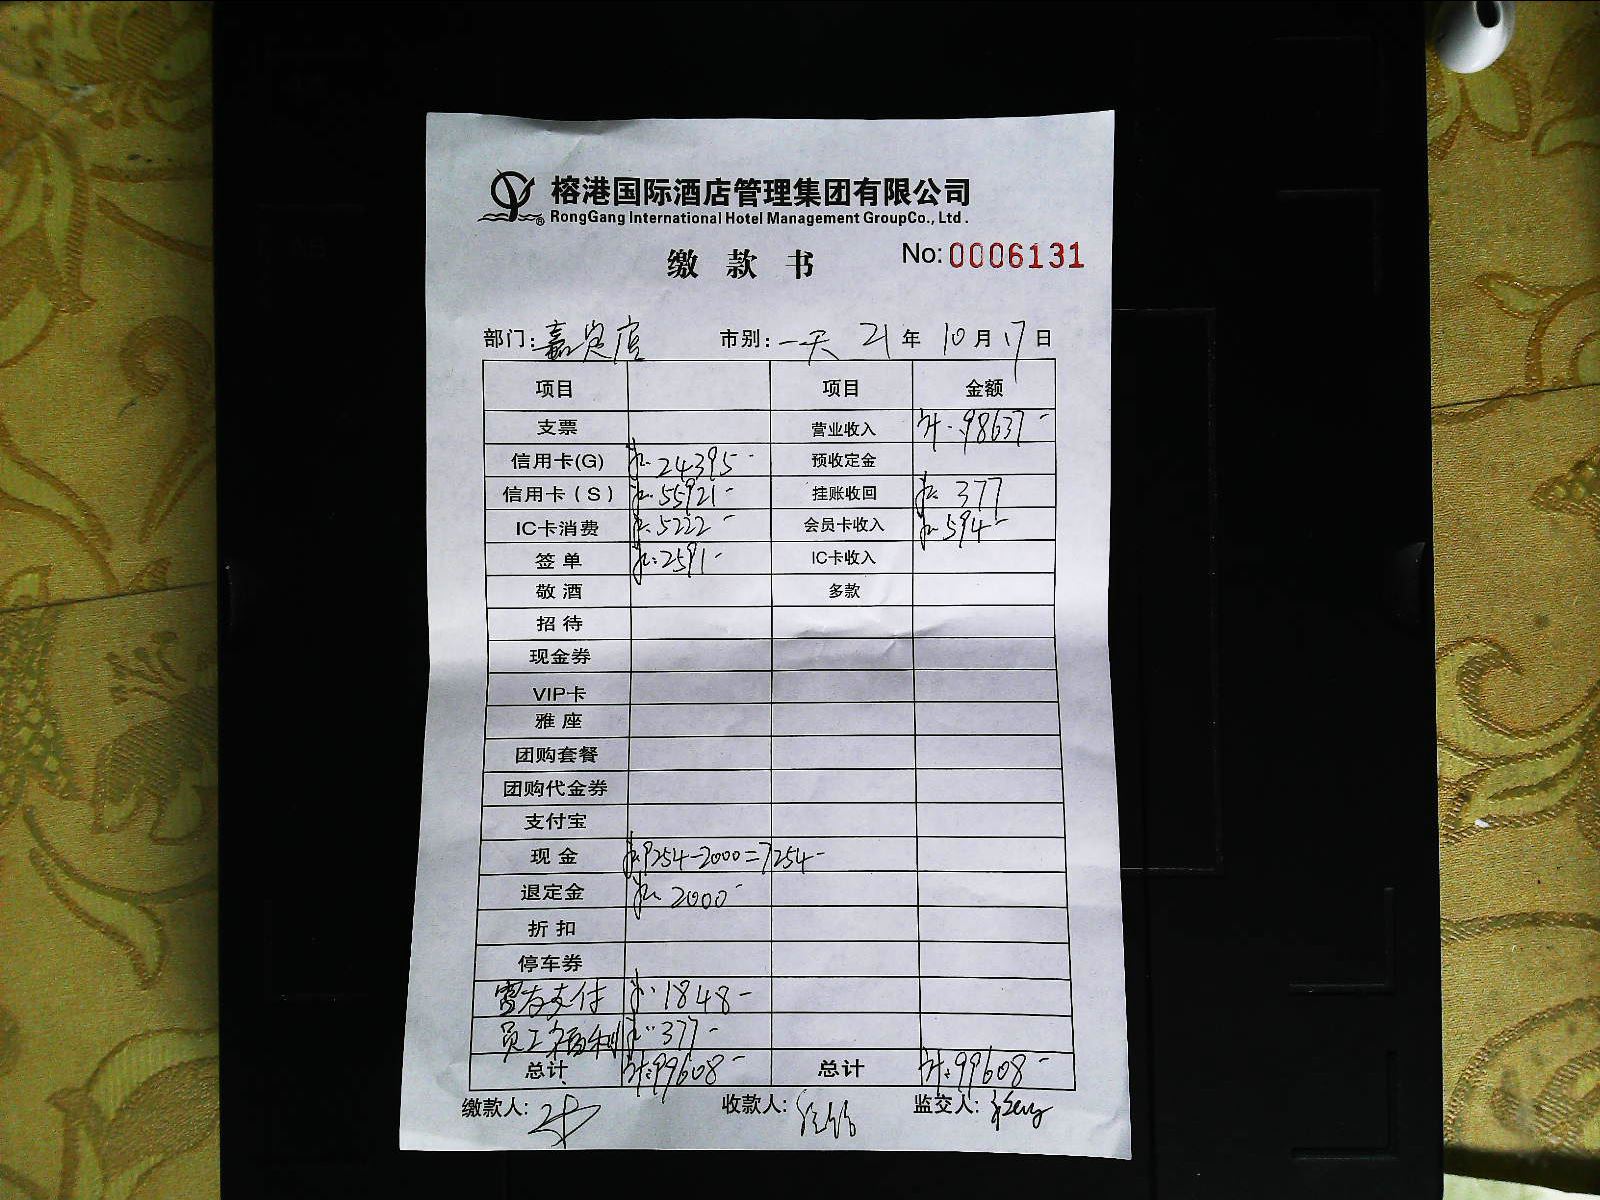 榕港国际酒店管理集团有限公司
RongGang International Hotel Management GroupCo., Ltd.
缴款书 No:0006131
部门:嘉定店 市别:一天 21年10月17日
项目 项目 金额
支票 营业收入 计:98637-
信用卡(G) 24395- 预收定金
信用卡(S) 55921- 挂账收回 377
IC卡消费 5222- 会员卡收入 594-
签单 2591- IC卡收入
敬酒 多款
招待
现金券
VIP卡
雅座
团购套餐
团购代金券
支付宝
现金 9254-2000=7254-
退定金 2000-
折扣
停车券
支付 1848-
员工福利 377-
总计 计:99608- 总计 计:99608-
缴款人: 收款人: 监交人: